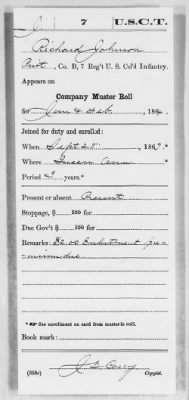 J 7 U.S.C.T.
Richard Johnson
Pvt., Co. B, 7 Reg't U. S. Col'd Infantry.
Appears on
Company Muster Roll
for Jan & Feb, 186 .
Joined for duty and enrolled:
When Sept 25, 186 .*
Where Queen Ann
Period 3 years.*
Present or absent Present
Stoppage, $ 100 for
Due Gov't $ 100 for
Remarks: $2.00 Enlistment pre-
mium due
* See enrollment on card from muster-in roll.
Book mark:
(358c) Copyist.